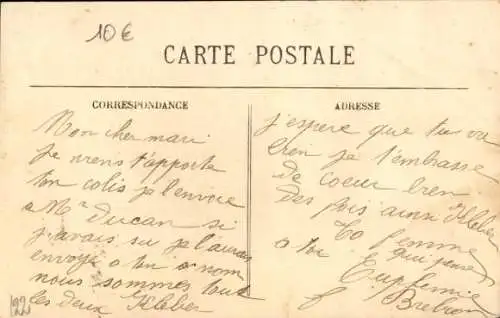 10€
CARTE POSTALE
CORRESPONDANCE
Mon cher mari
je viens t'apporte
ton colis je l'envoie
a Mr Ducan si
j'avais su je l'aurais
envoyé a ton nom
nous sommes tout
les deux Kleber
22
ADRESSE
j'espere que tu va
bien je t'embrasse
de coeur bien
des fois ainsi Kleber
To femme
qui pense
a toi
Eupfemie
Brebion